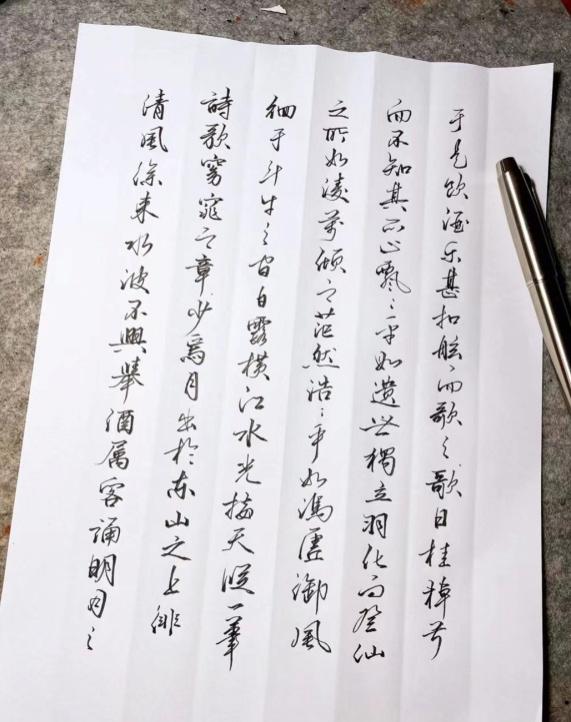 清風徐来水波不興舉酒属客誦明月之
詩歌窈窕之章少焉月出於东山之上徘
徊于斗牛之间白露横江水光接天纵一苇
之所如凌萬顷之茫然浩々乎如馮虚御風
而不知其所止飘々乎如遗世獨立羽化而登仙
于是饮酒乐甚扣舷而歌之歌曰桂棹兮